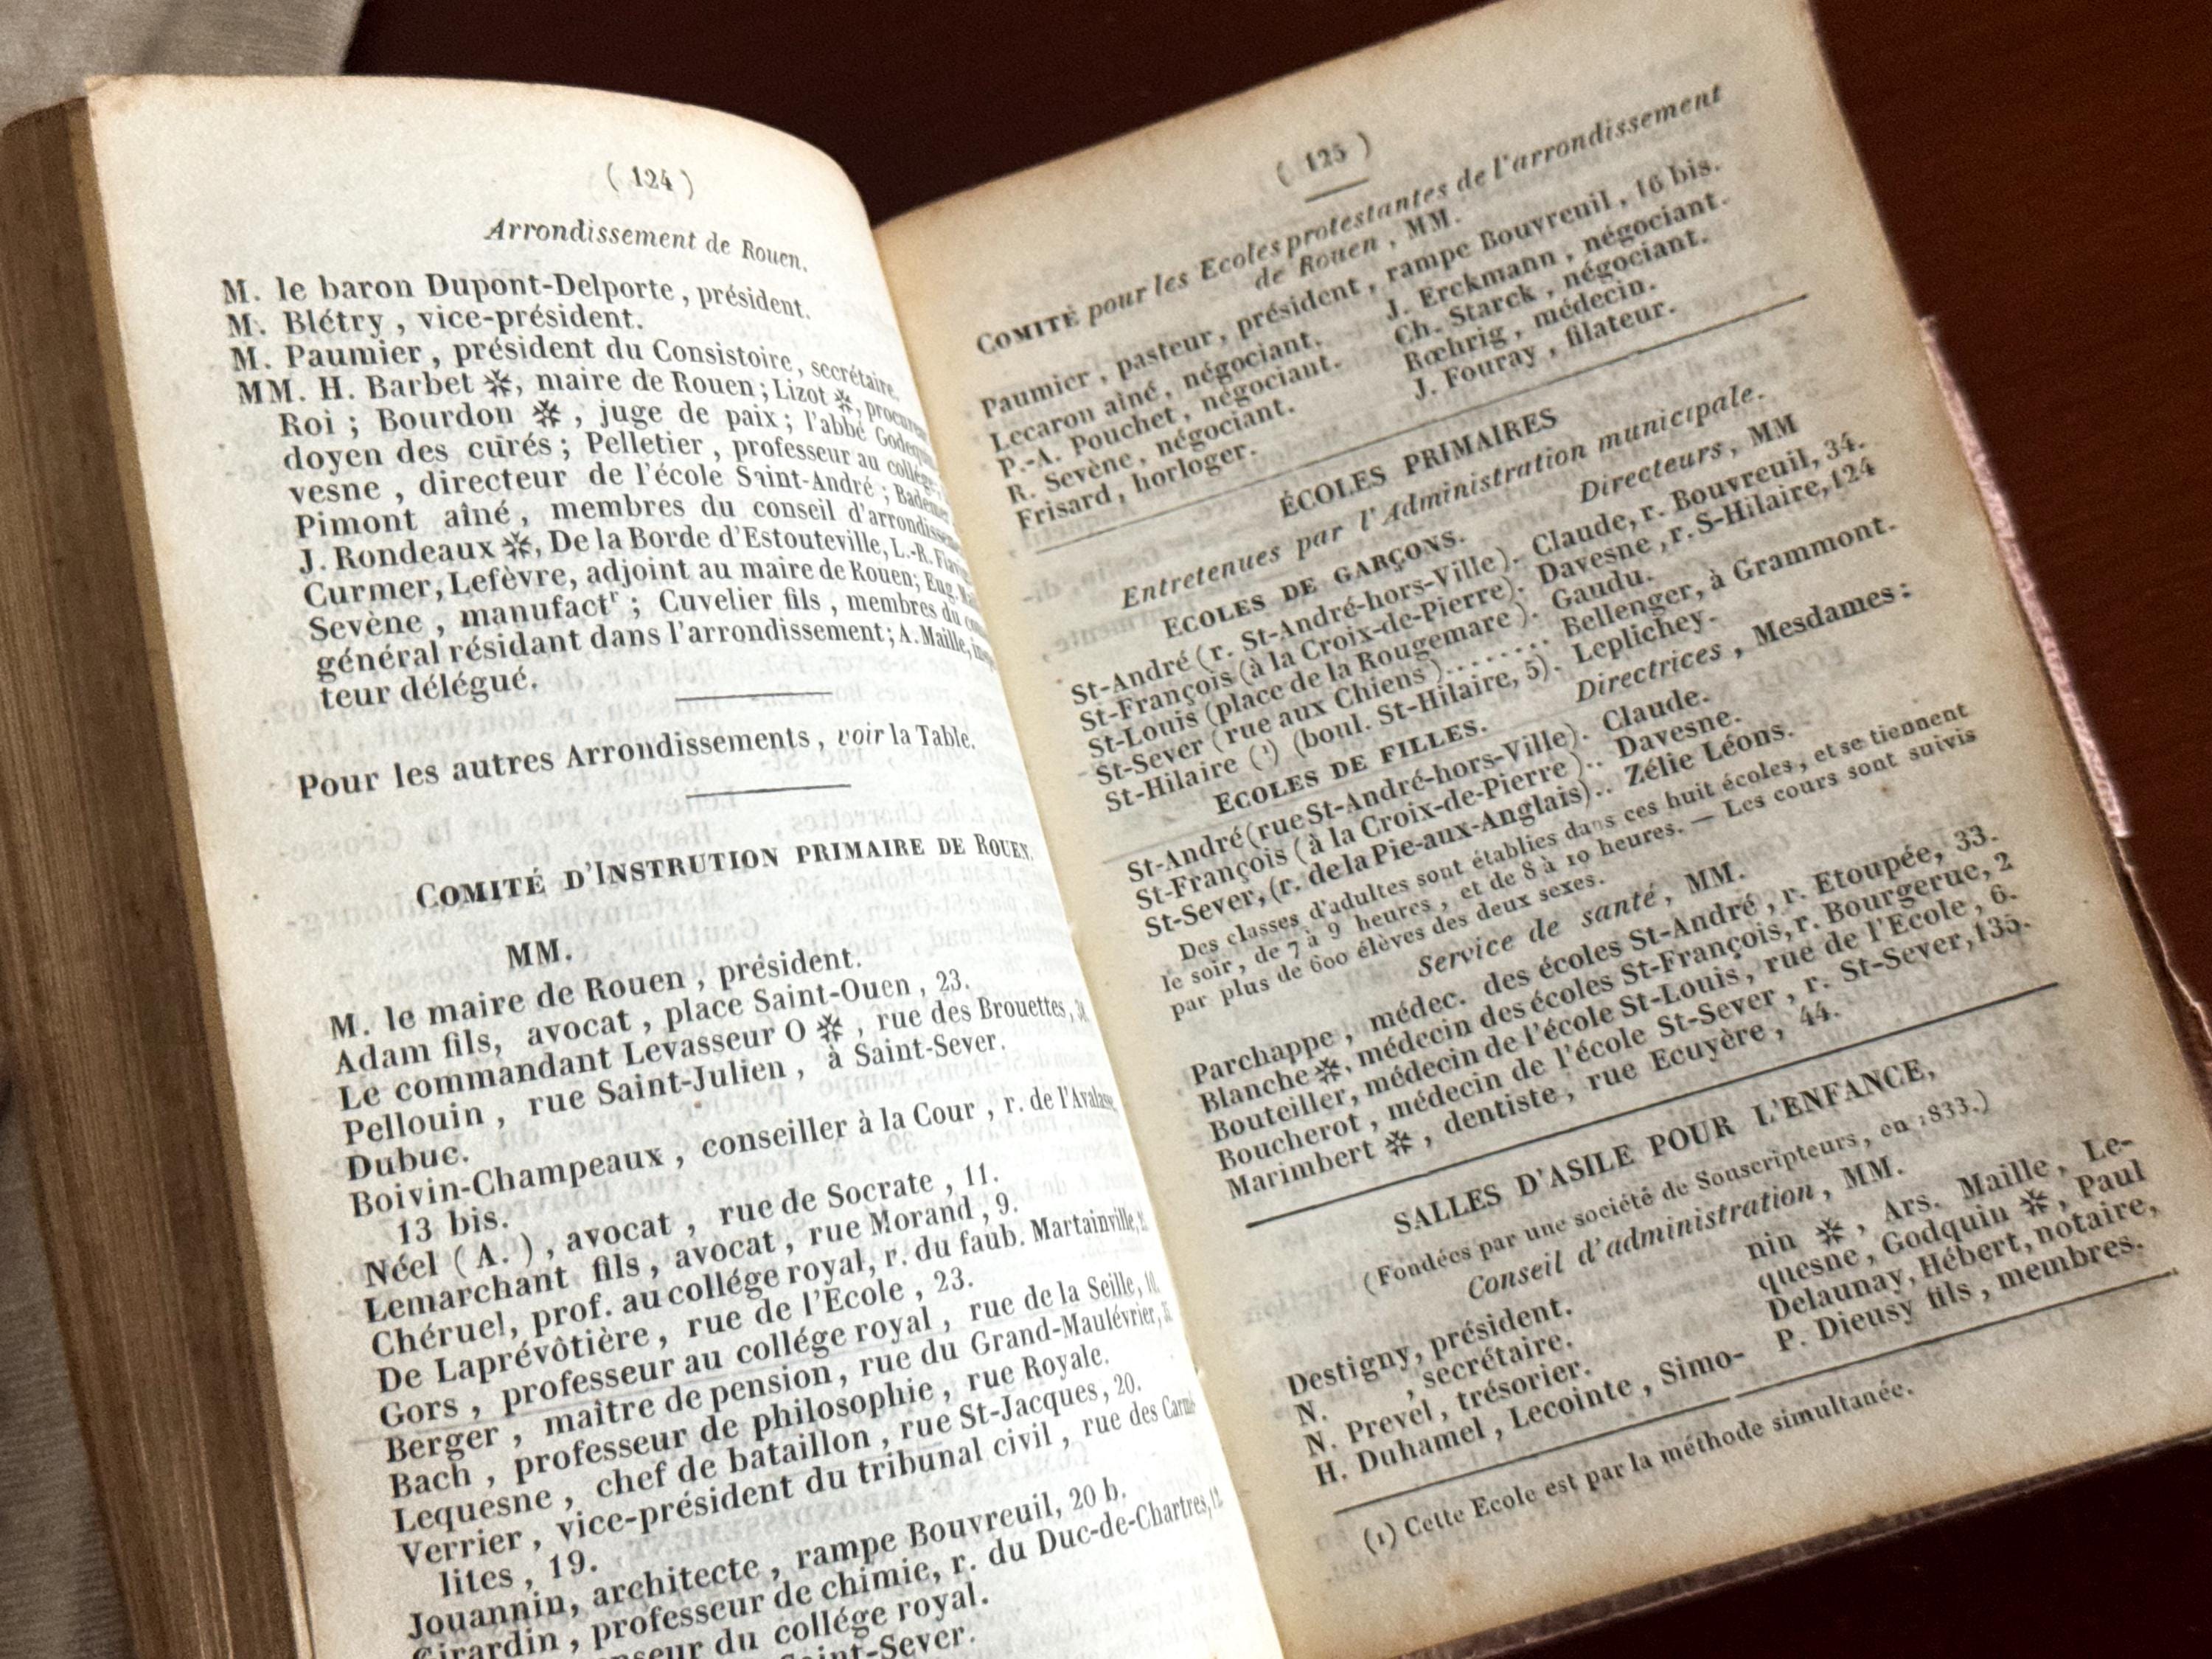 ( 124 )
Arrondissement de Rouen.
M. le baron Dupont-Delporte, président.
M. Blétry, vice-président.
M. Paumier, président du Consistoire, secrétaire.
MM. H. Barbet ✻, maire de Rouen; Lizot ✻,
Roi; Bourdon ✻, juge de paix; l'abbé
doyen des curés; Pelletier, professeur au
vesne, directeur de l'école Saint-André;
Pimont aîné, membres du conseil
J. Rondeaux ✻, De la Borde d'Estouteville, L.-R.
Curmer, Lefèvre, adjoint au maire de Rouen; Eug.
Sevène, manufactr; Cuvelier fils, membres du
général résidant dans l'arrondissement; A. Maille,
teur délégué.
Pour les autres Arrondissements, voir la Table.
COMITÉ D'INSTRUTION PRIMAIRE DE ROUEN.
MM.
M. le maire de Rouen, président.
Adam fils, avocat, place Saint-Ouen, 23.
Le commandant Levasseur O ✻, rue des Brouettes,
Pellouin, rue Saint-Julien, à Saint-Sever.
Dubuc.
Boivin-Champeaux, conseiller à la Cour, r. de l'Avalasse,
13 bis.
Néel (A.), avocat, rue de Socrate, 11.
Lemarchant fils, avocat, rue Morand, 9.
Chéruel, prof. au collége royal, r. du faub. Martainville,
De Laprévôtière, rue de l'Ecole, 23.
Gors, professeur au collége royal, rue de la Seille, 10.
Berger, maître de pension, rue du Grand-Maulévrier,
Bach, professeur de philosophie, rue Royale.
Lequesne, chef de bataillon, rue St-Jacques, 20.
Verrier, vice-président du tribunal civil, rue des Carmé-
lites, 19.
Jouannin, architecte, rampe Bouvreuil, 20 b.
Girardin, professeur de chimie, r. du Duc-de-Chartres, 12
du collége royal.
Saint-Sever.
( 125 )
COMITÉ pour les Ecoles protestantes de l'arrondissement
de Rouen, MM.
Paumier, pasteur, président, rampe Bouvreuil, 16 bis.
Lecaron aîné, négociant.
P.-A. Pouchet, négociant.
R. Sevène, négociant.
Frisard, horloger.
J. Erckmann, négociant.
Ch. Starck, négociant.
Rœhrig, médecin.
J. Fouray, filateur.
ÉCOLES PRIMAIRES
Entretenues par l'Administration municipale.
ECOLES DE GARÇONS. Directeurs, MM
St-André (r. St-André-hors-Ville). Claude, r. Bouvreuil, 34.
St-François (à la Croix-de-Pierre). Davesne, r. S-Hilaire, 124
St-Louis (place de la Rougemare). Gaudu.
St-Sever (rue aux Chiens)........ Bellenger, à Grammont.
St-Hilaire (1) (boul. St-Hilaire, 5). Leplichey.
ECOLES DE FILLES. Directrices, Mesdames:
St-André (rue St-André-hors-Ville). Claude.
St-François (à la Croix-de-Pierre).. Davesne.
St-Sever, (r. de la Pie-aux-Anglais).. Zélie Léons.
Des classes d'adultes sont établies dans ces huit écoles, et se tiennent
le soir, de 7 à 9 heures, et de 8 à 10 heures. — Les cours sont suivis
par plus de 600 élèves des deux sexes.
Service de santé, MM.
Parchappe, médec. des écoles St-André, r. Etoupée, 33.
Blanche ✻, médecin des écoles St-François, r. Bourgerue, 2
Bouteiller, médecin de l'école St-Louis, rue de l'Ecole, 6.
Boucherot, médecin de l'école St-Sever, r. St-Sever, 135.
Marimbert ✻, dentiste, rue Ecuyère, 44.
SALLES D'ASILE POUR L'ENFANCE,
(Fondées par une société de Souscripteurs, en 1833.)
Conseil d'administration, MM.
Destigny, président.
N. , secrétaire.
N. Prevel, trésorier.
H. Duhamel, Lecointe, Simo-
nin ✻, Ars. Maille, Le-
quesne, Godquin ✻, Paul
Delaunay, Hébert, notaire,
P. Dieusy fils, membres.
(1) Cette Ecole est par la méthode simultanée.